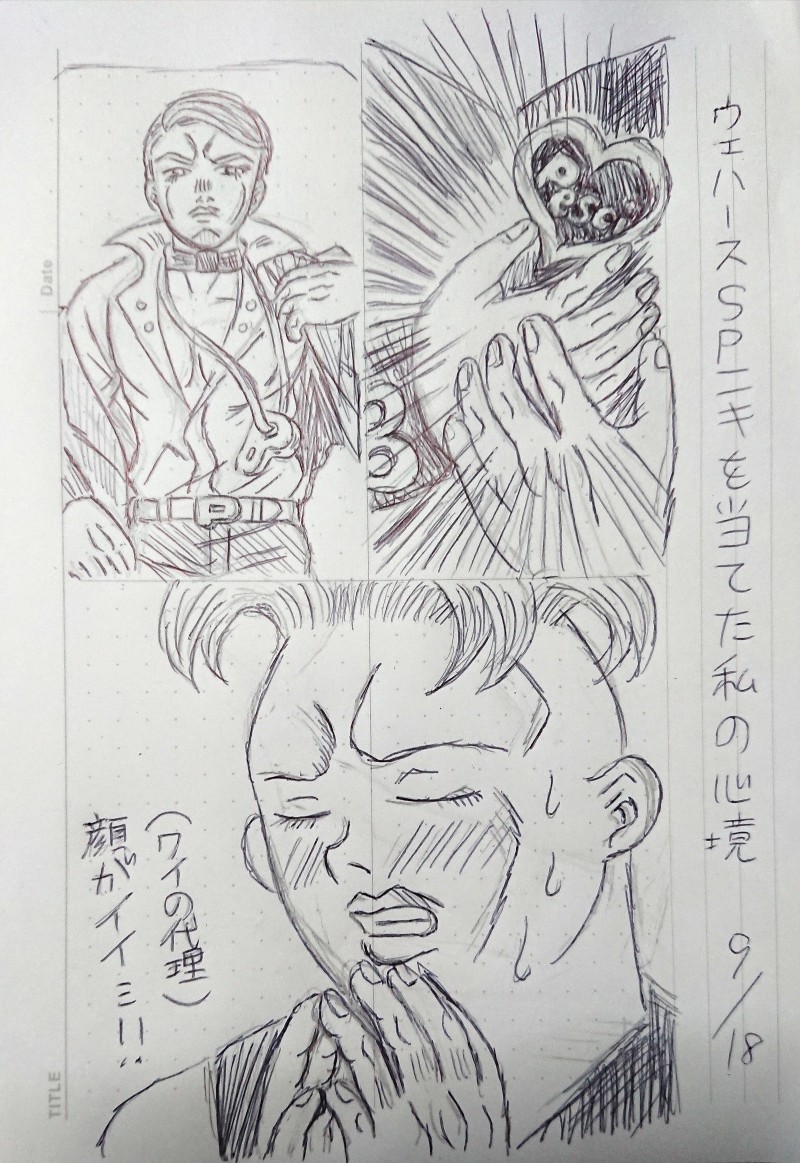 ウエハースSPニキを当てた私の心境 9/18
(ワイの代理)
顔がイイ…!!
Date
TITLE